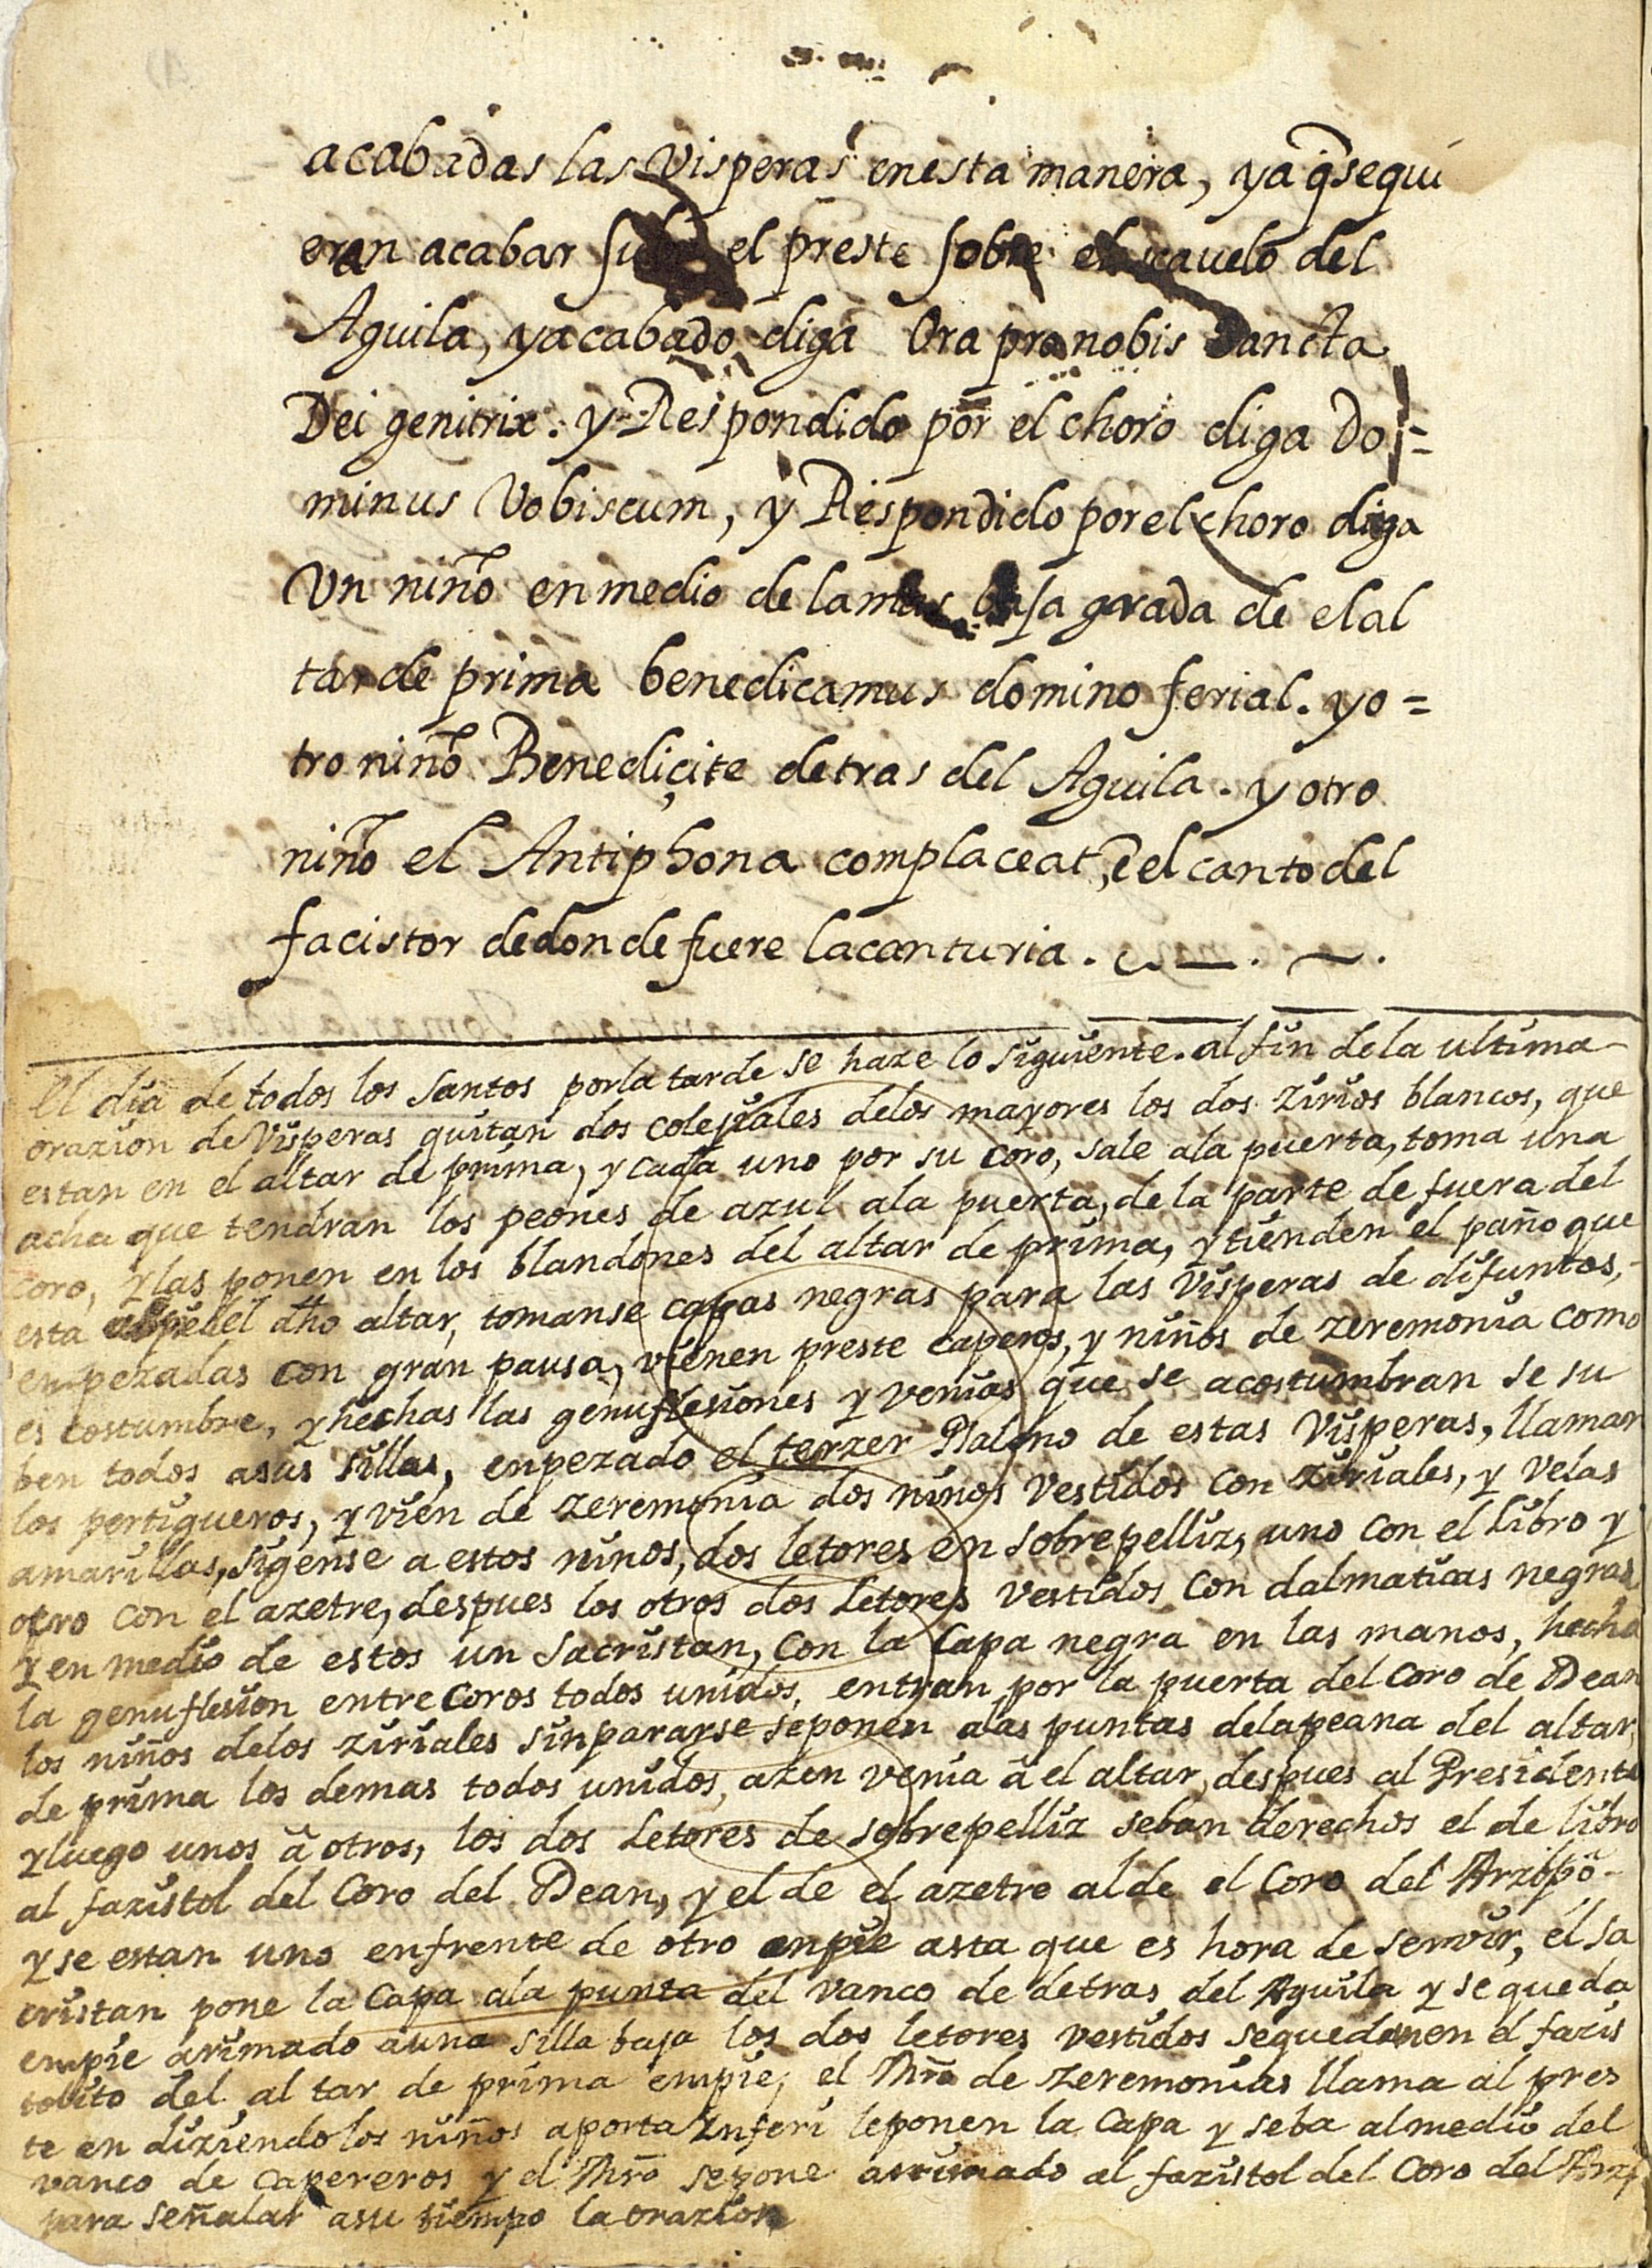 acabadas las Visperas enesta manera, ya q̃ sequi
eran acabar el preste sobre el del
Aguila, yacabado diga Ora pro nobis Sancta
Dei genitrix. y Respondido por el choro diga Do=
minus Vobiscum, y Respondido por el choro diga
Vn niño en medio de la mas baja grada de el al
tar de prima benedicamus domino ferial. yo=
tro niño Benediçite detras del Aguila. y otro
niño el Antiphona complaceat, e el canto del
facistor dedonde fuere lacanturia.
El dia de todos los santos porla tarde se haze lo siguiente. al fin dela ultima
orazion de Visperas quitan dos colejiales delos mayores los dos zirios blancos, que
estan en el altar de prima, y cada uno por su coro, sale ala puerta, toma una
acha que tendran los peones de azul ala puerta, de la parte de fuera del
coro, y las ponen en los blandones del altar de prima, y tienden el paño que
esta al pie del dho altar, tomanse capas negras para las Visperas de difuntos,
enpezadas con gran pausa, vienen preste caperos, y niños de zeremonia como
es costumbre, y hechas las genuflesiones y venias que se acostumbran se su
ben todos asus sillas, enpezado el terzer Psalmo de estas Visperas, llaman
los pertigueros, y vien de zeremonia dos niños Vestidos con ziriales, y velas
amarillas, sigense a estos niños, dos letores en sobrepelliz, uno con el libro y
otro con el azetre, despues los otros dos Letores vestidos con dalmaticas negras,
y en medio de estos un Sacristan, con la Capa negra en las manos, hecha
la genuflesion entre coros todos unidos, entran por la puerta del Coro de Dean
los niños delos ziriales sinpararse seponen alas puntas delapeana del altar,
de prima los demas todos unidos, azen venia à el altar, despues al Presidente
y luego unos à otros, los dos Letores de sobrepelliz seban derechos el de libro
al fazistol del Coro del Dean, y el de el azetre al de el Coro del Arzobpõ
y se estan uno enfrente de otro enpie asta que es hora de servir, el sa
cristan pone la Capa ala punta del vanco de detras del Aguila y se queda
enpie arimado auna silla baja los dos letores vestidos sequedanen el fazis
tolito del altar de prima enpie, el Mrõ de zeremonias llama al pres
te en diziendo los niños aporta Inferi leponen la Capa y seba almedio del
vanco de capereros y el Mrõ sepone arrimado al fazistol del Coro del Arzp
para señalar asu tiempo la orazion